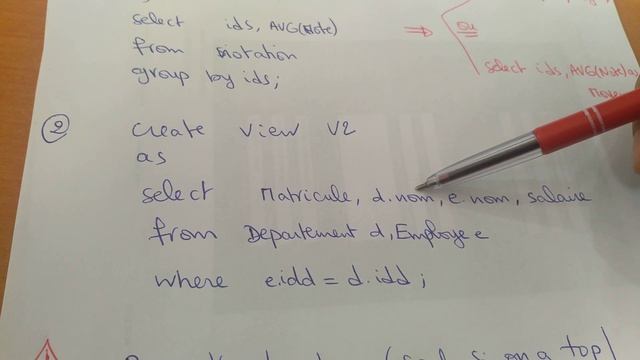 select ids, AVG(Note)
from Notation
group by ids;
⇒
ou
select ids, AVG(Note) as
②
create view V2
as
select Matricule, d.nom, e.nom, salaire
from Departement d, Employe e
where e.idd = d.idd;
on a top